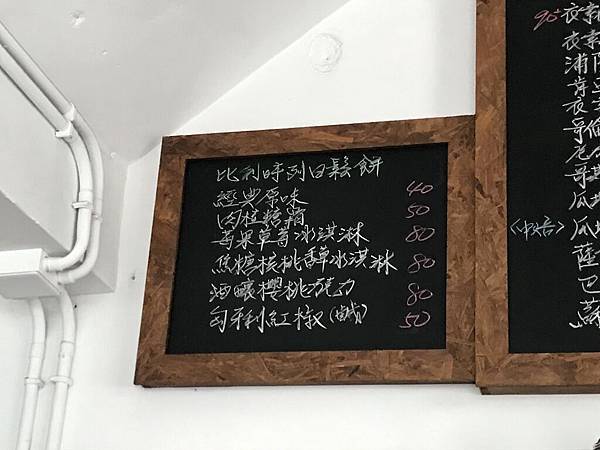 比利時列日鬆餅
經典原味 40
肉桂糖霜 50
莓果草莓冰淇淋 80
焦糖核桃香草冰淇淋 80
酒釀櫻桃巧克力 80
匈牙利紅椒(鹹) 50
90+ 衣索
衣索
浦隆
肯亞
衣索
哥倫
尼加
哥斯
瓜地
<中焙> 瓜地
薩
巴
蘇